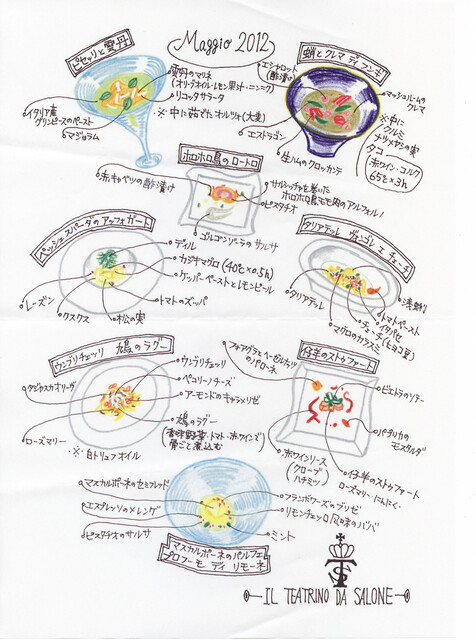 Maggio 2012
ピセッリと雲丹
雲丹のマリネ
(オリーブオイル・レモン果汁・ニンニク)
リコッタサラータ
※中に茹でたオルツォ(大麦)
イタリア産
グリンピースのペースト
マジョラム
蛸とクレマ ディ フンギ
エシャロット
(酢漬け)
マッシュルームの
クレマ
※中に
クルミ
ナツメヤシの実
タコ
赤ワイン・コルク
65℃×3h
エストラゴン
生ハムのクロッカンテ
ホロホロ鳥のロートロ
赤キャベツの酢漬け
サルシッチャを射った
ホロホロ鳥モモ肉のアルフォルノ
ピスタチオ
ゴルゴンゾーラのサルサ
ペッシェスパーダのアッフォガート
ディル
カジキマグロ(40℃×0.5h)
ケッパーペーストとレモンピール
トマトのズッパ
レーズン
クスクス
松の実
タリアテッレ ヴォンゴレ エ チェーチ
タリアテッレ
浅蜊
トマトペースト
イタパセ
チェーチ(ヒヨコ豆)
マグロのカラスミ
ウンブリチェッリ 鳩のラグー
ウンブリチェッリ
ペコリーノチーズ
アーモンドのキャラメリゼ
鳩のラグー
(香味野菜・トマト・赤ワインで
骨ごと煮込む)
タジャスカオリーヴ
ローズマリー
※白トリュフオイル
仔羊のストゥファート
フォアグラとヘーゼルナッツ
のパローネ
ピエトラのリゾー
パプリカの
モスタルダ
赤ワインソース
(クローブ
ハチミツ)
仔羊のストゥファート
ローズマリー・にんにく
マスカルポーネのセミフレッド
エスプレッソのメレンゲ
ピスタチオのサルサ
フランボワーズのブリゼ
リモンチェッロ風味のババ
ミント
マスカルポーネのパルフェ
プロフーモ ディ リモーネ
IL TEATRINO DA SALONE